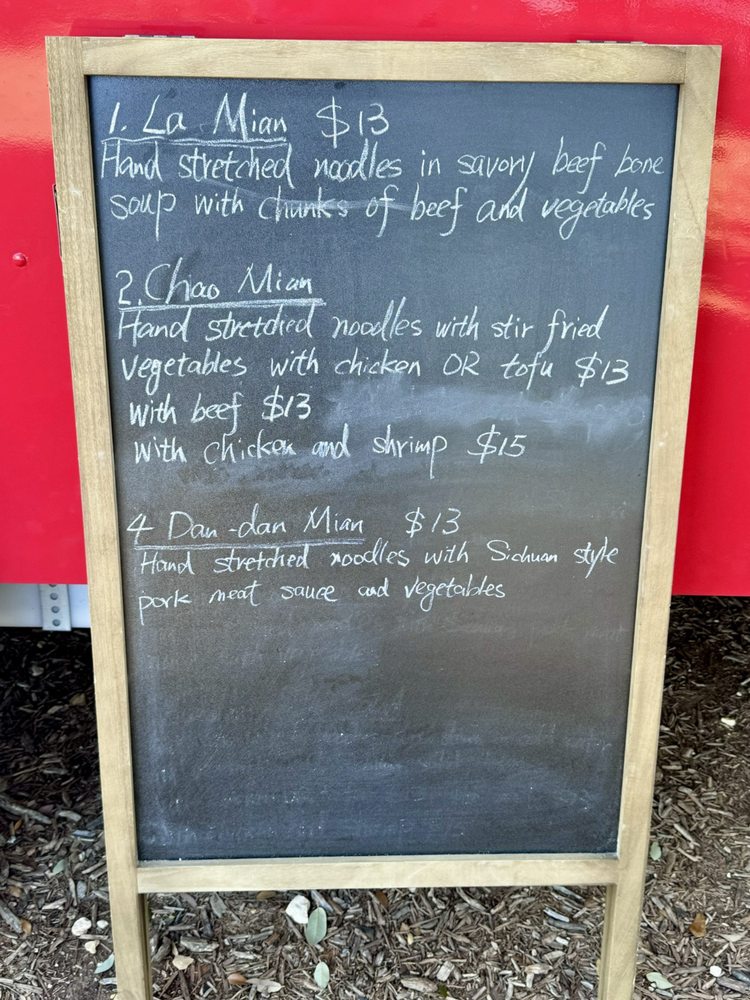 1. La Mian $13
Hand stretched noodles in savory beef bone
soup with chunks of beef and vegetables
2. Chao Mian
Hand stretched noodles with stir fried
vegetables with chicken OR tofu $13
with beef $13
with chicken and shrimp $15
4 Dan-dan Mian $13
Hand stretched noodles with Sichuan style
pork meat sauce and vegetables